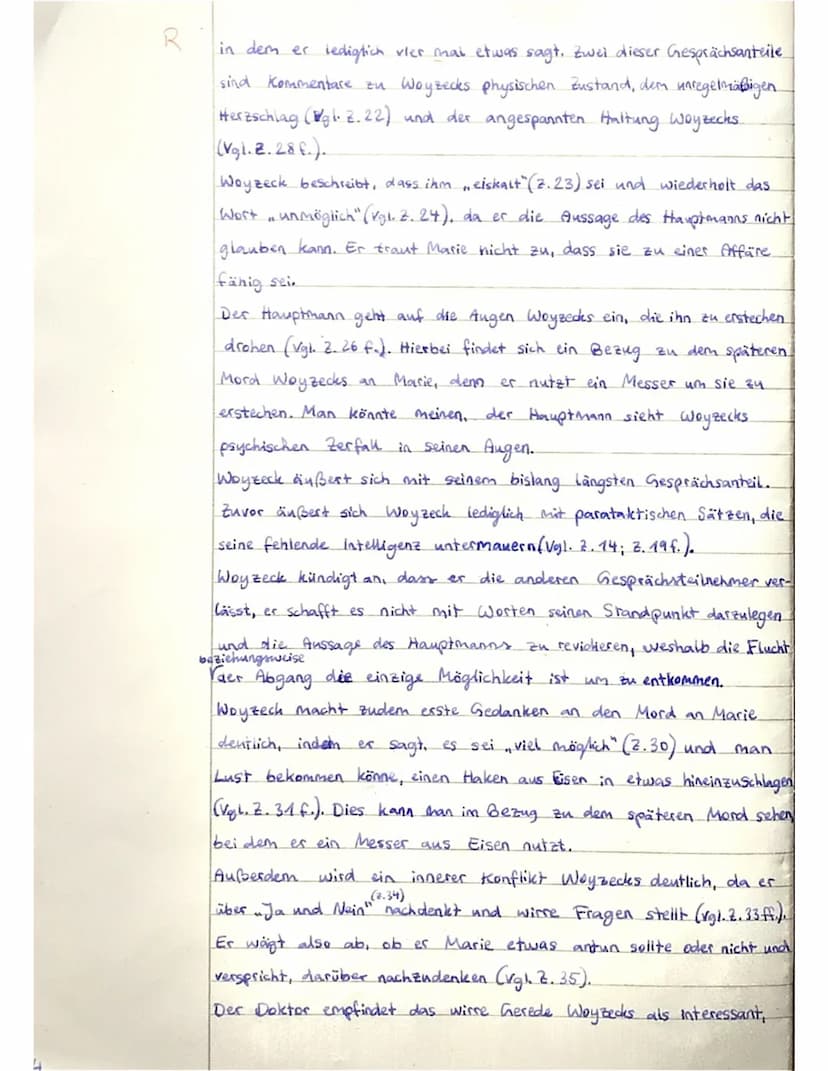 R
in dem er lediglich vier mal etwas sagt. Zwei dieser Gesprächsanteile
sind Kommentare zu Woyzecks physischen Zustand, dem unregelmäßigen
Herzschlag (Vgl. Z. 22) und der angespannten Haltung Woyzecks
(Vgl. Z. 28 f.).
Woyzeck beschreibt, dass ihm „eiskalt" (Z. 23) sei und wiederholt das
Wort „unmöglich" (Vgl. Z. 24), da er die Aussage des Hauptmanns nicht
glauben kann. Er traut Marie nicht zu, dass sie zu einer Affäre
fähig sei.
Der Hauptmann geht auf die Augen Woyzecks ein, die ihn zu erstechen
drohen (Vgl. Z. 26 f.). Hierbei findet sich ein Bezug zu dem späteren
Mord Woyzecks an Marie, denn er nutzt ein Messer um sie zu
erstechen. Man könnte meinen, der Hauptmann sieht Woyzecks
psychischen Zerfall in seinen Augen.
Woyzeck äußert sich mit seinem bislang längsten Gesprächsanteil.
Zuvor äußert sich Woyzeck lediglich mit parataktischen Sätzen, die
seine fehlende Intelligenz untermauern (Vgl. Z. 14; Z. 19 f.).
Woyzeck kündigt an, dass er die anderen Gesprächsteilnehmer ver-
lässt, er schafft es nicht mit Worten seinen Standpunkt darzulegen
und die Aussage des Hauptmanns zu revidieren, weshalb die Flucht
beziehungsweise
der Abgang die einzige Möglichkeit ist um zu entkommen.
Woyzeck macht zudem erste Gedanken an den Mord an Marie
deutlich, indem er sagt, es sei „viel möglich" (Z. 30) und man
Lust bekommen könne, einen Haken aus Eisen in etwas hineinzuschlagen
(Vgl. Z. 31 f.). Dies kann man im Bezug zu dem späteren Mord sehen,
bei dem er ein Messer aus Eisen nutzt.
Außerdem wird ein innerer Konflikt Woyzecks deutlich, da er
(Z. 34)
über „Ja und Nein" nachdenkt und wirre Fragen stellt (Vgl. Z. 33 ff.).
Er wägt also ab, ob er Marie etwas antun sollte oder nicht und
verspricht, darüber nachzudenken (Vgl. Z. 35).
Der Doktor empfindet das wirre Gerede Woyzecks als interessant,
4